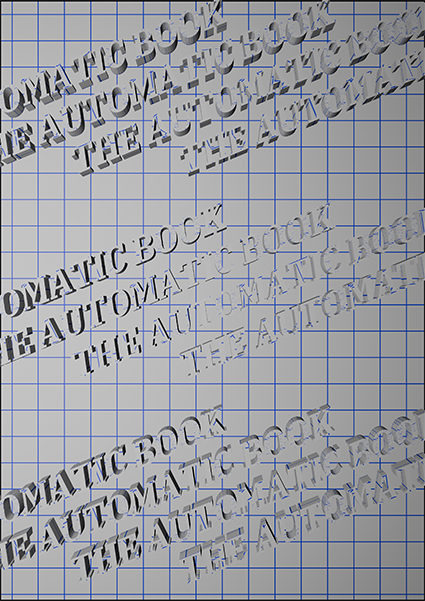 OMATIC BOOK
THE AUTOMATIC BOOK
THE AUTOMATIC BOOK
THE AUTOMATI
OMATIC BOOK
THE AUTOMATIC BOOK
THE AUTOMATIC BOOK
THE AUTOMATI
OMATIC BOOK
THE AUTOMATIC BOOK
THE AUTOMATIC BOOK
THE AUTOMATI